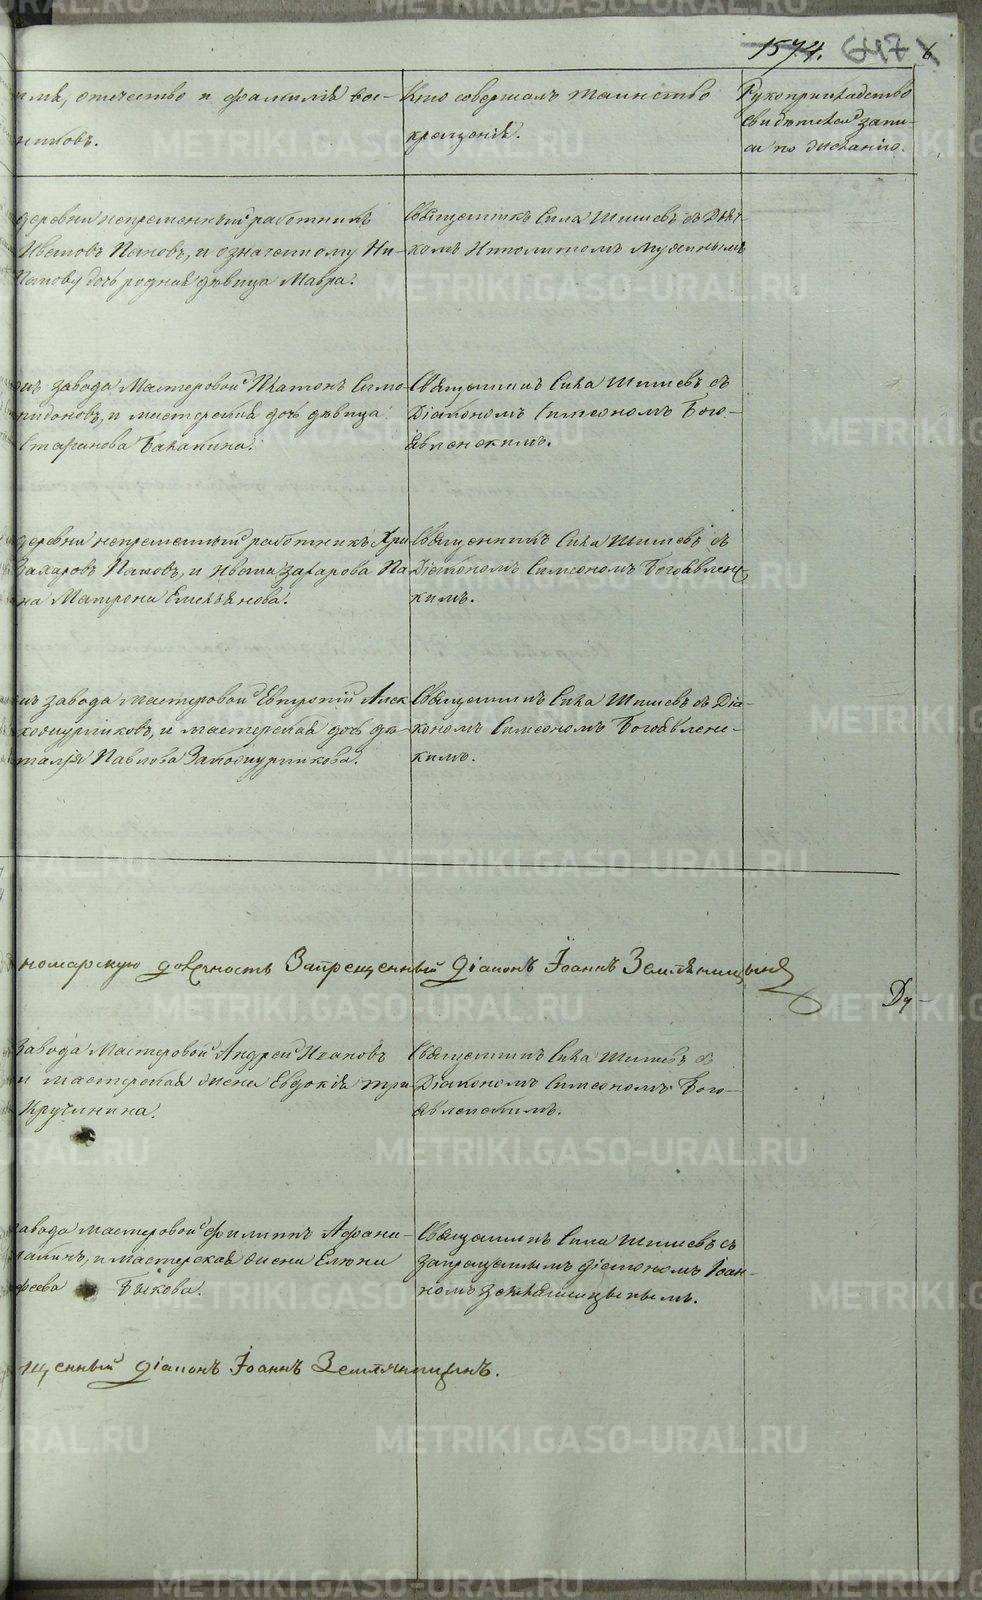 1574. 647
имя, отчество и фамилія вос-
никовъ.
Кто совершалъ таинство
крещенія.
Рукоприкладство
свидѣтелей запи-
си по желанію.
деревни непременный работникъ
Ивановъ Пановъ, и означенному Ни-
Панову дочь родная дѣвица Мавра.
Священникъ Сила Шишевъ съ Дьяч-
комъ Ипполитомъ
завода Мастеровой Платонъ
и мастерская дочь дѣвица
Бакакина.
Священникъ Сила Шишевъ съ
Діакономъ Симеономъ Бого-
явленскимъ.
деревни непременный работникъ
Захаровъ Пановъ, и Ивана Захарова Па-
на Матрона Емельянова.
Священникъ Сила Шишевъ съ
Діакономъ Симеономъ Богоявленс
кимъ.
завода мастеровой Евтропій Алек
и мастерская дочь дѣ-
Павлова
Священникъ Сила Шишевъ съ Діа-
кономъ Симеономъ Богоявленс-
кимъ.
номарскую должность Запрещенный діаконъ Іоаннъ Земляницынъ
Ду-
завода Мастеровой Андрей Ивановъ
и мастерская жена Евдокія три-
Кручинина.
Священникъ Сила Шишевъ съ
Діакономъ Симеономъ Бого-
явленскимъ.
завода мастеровой Филиппъ Афана-
и мастерская жена Елена
феева Быкова.
Священникъ Сила Шишевъ съ
запрещеннымъ діакономъ Іоан-
номъ Земляницынымъ.
щенный діаконъ Іоаннъ Земляницынъ.
METRIKI.GASO-URAL.RU